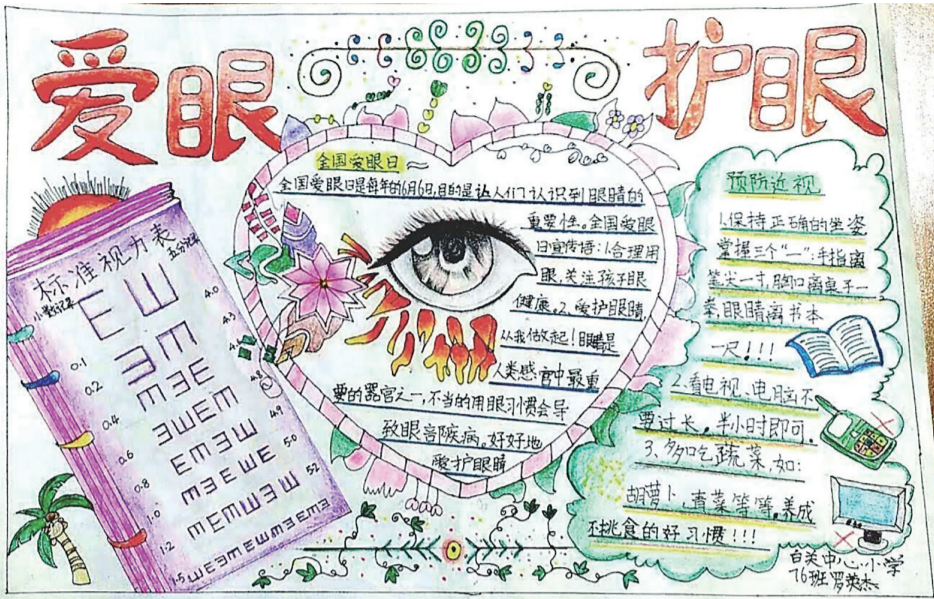 爱眼
护眼
标准视力表
小数记录
五分记录
4.0
4.3
4.8
4.9
5.0
5.2
0.1
0.2
0.4
0.6
0.8
1.0
1.2
1.5
全国爱眼日
全国爱眼日是每年的6月6日,目的是让人们认识到眼睛的
重要性。全国爱眼
日宣传语:1.合理用
眼,关注孩子眼
健康。2、爱护眼睛,
从我做起!眼睛是
人类感官中最重
要的器官之一,不当的用眼习惯会导
致眼部疾病。好好地
爱护眼睛
预防近视
1.保持正确的坐姿
掌握三个"一":手指离
笔尖一寸,胸口离桌子一
拳,眼睛离书本
一尺!!!
2.看电视、电脑不
要过长,半小时即可.
3、多吃蔬菜,如:
胡萝卜、青菜等等,养成
不挑食的好习惯!!!
白关中心小学
76班 罗英杰